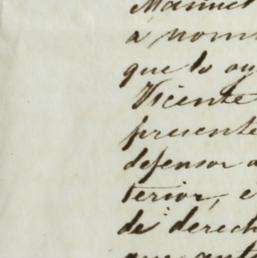 Manuel
a nom
que lo
Vicente
presente
defensor a
terior, e
de derech
que ante